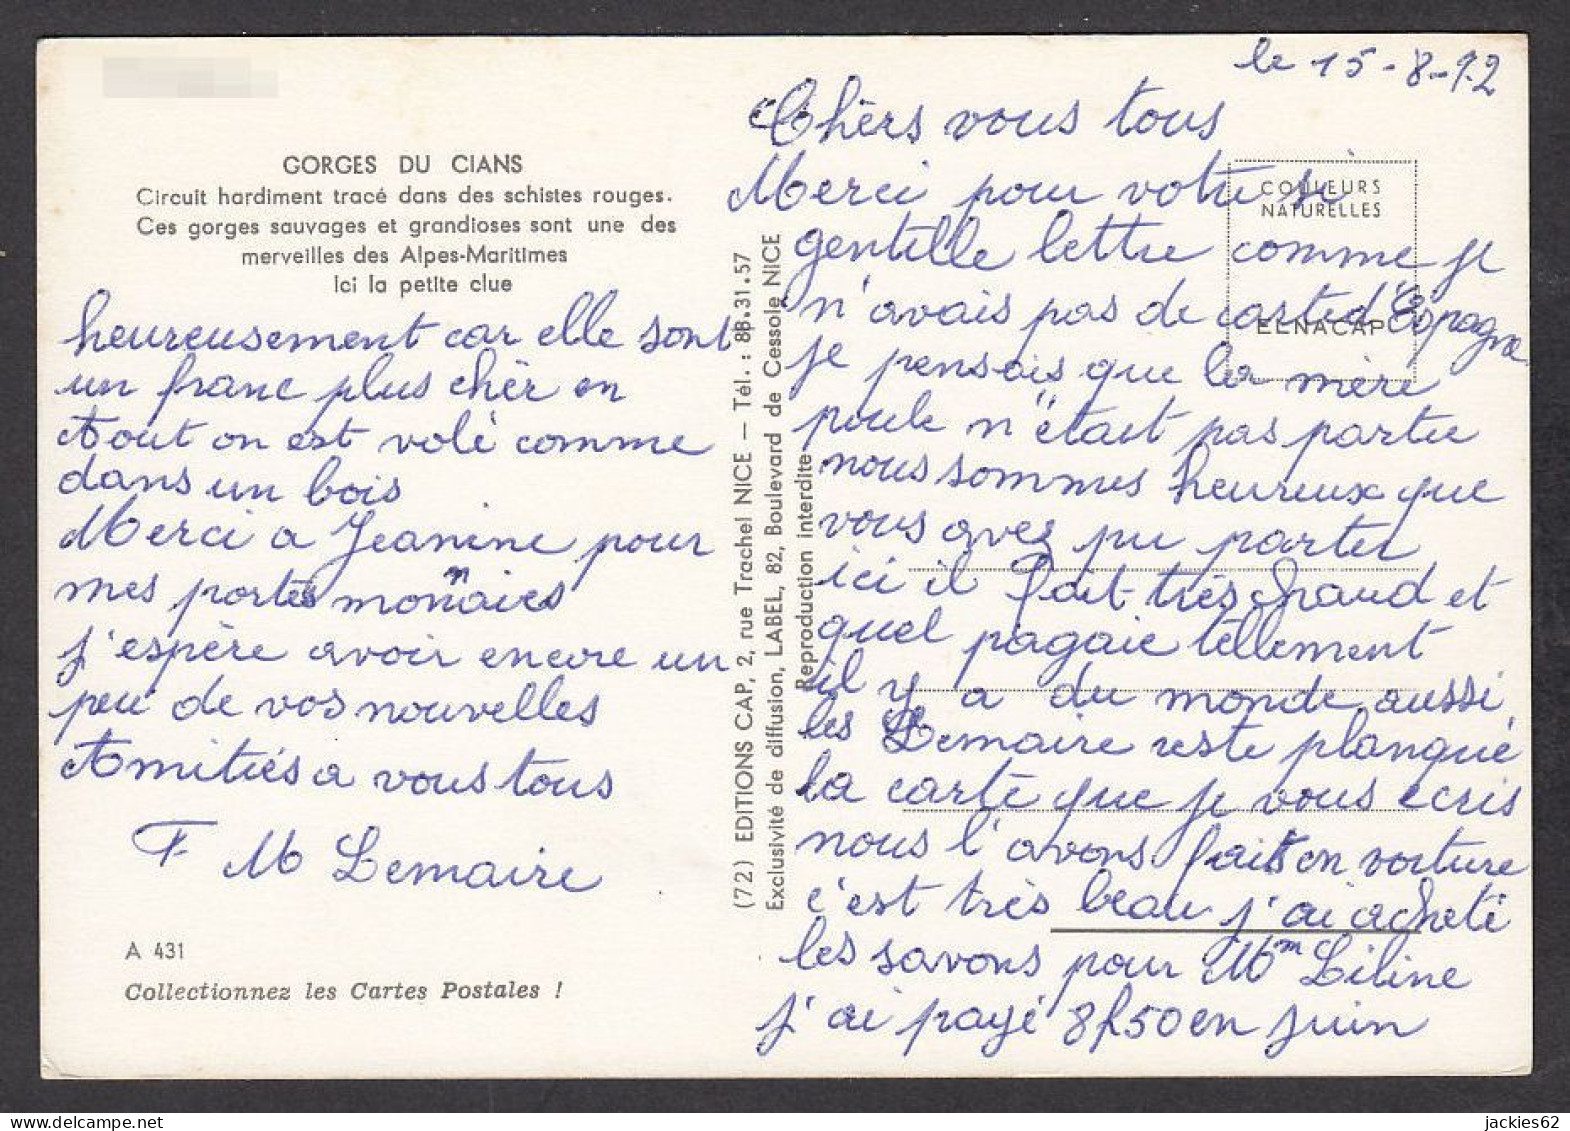 le 15-8-92
Chèrs vous tous
Merci pour votre si
gentille lettre comme je
n'avais pas de carte d'Espagne
je pensais que la mère
poule n'était pas partie
nous sommes heureux que
vous aves pu partir
ici il fait très chaud et
quel pagaie tellement
il y a du monde aussi
les Lemaire reste planqué
la carte que je vous écris
nous l'avons fait en voiture
c'est très beau j'ai acheté
les savons pour Mm Liline
j'ai payé 8f50 en juin
GORGES DU CIANS
Circuit hardiment tracé dans des schistes rouges.
Ces gorges sauvages et grandioses sont une des
merveilles des Alpes-Maritimes
Ici la petite clue
heureusement car elle sont
un franc plus chèr en
Aout on est volé comme
dans un bois
Merci a Jeanine pour
mes portes monnaies
j'espère avoir encore un
peu de vos nouvelles
Amitiés a vous tous
F M Lemaire
A 431
Collectionnez les Cartes Postales !
(72) EDITIONS CAP, 2, rue Trachel NICE — Tél. : 88.31.57
Exclusivité de diffusion, LABEL, 82, Boulevard de Cessole NICE
Reproduction interdite
COULEURS
NATURELLES
ELNACAP
jackies62